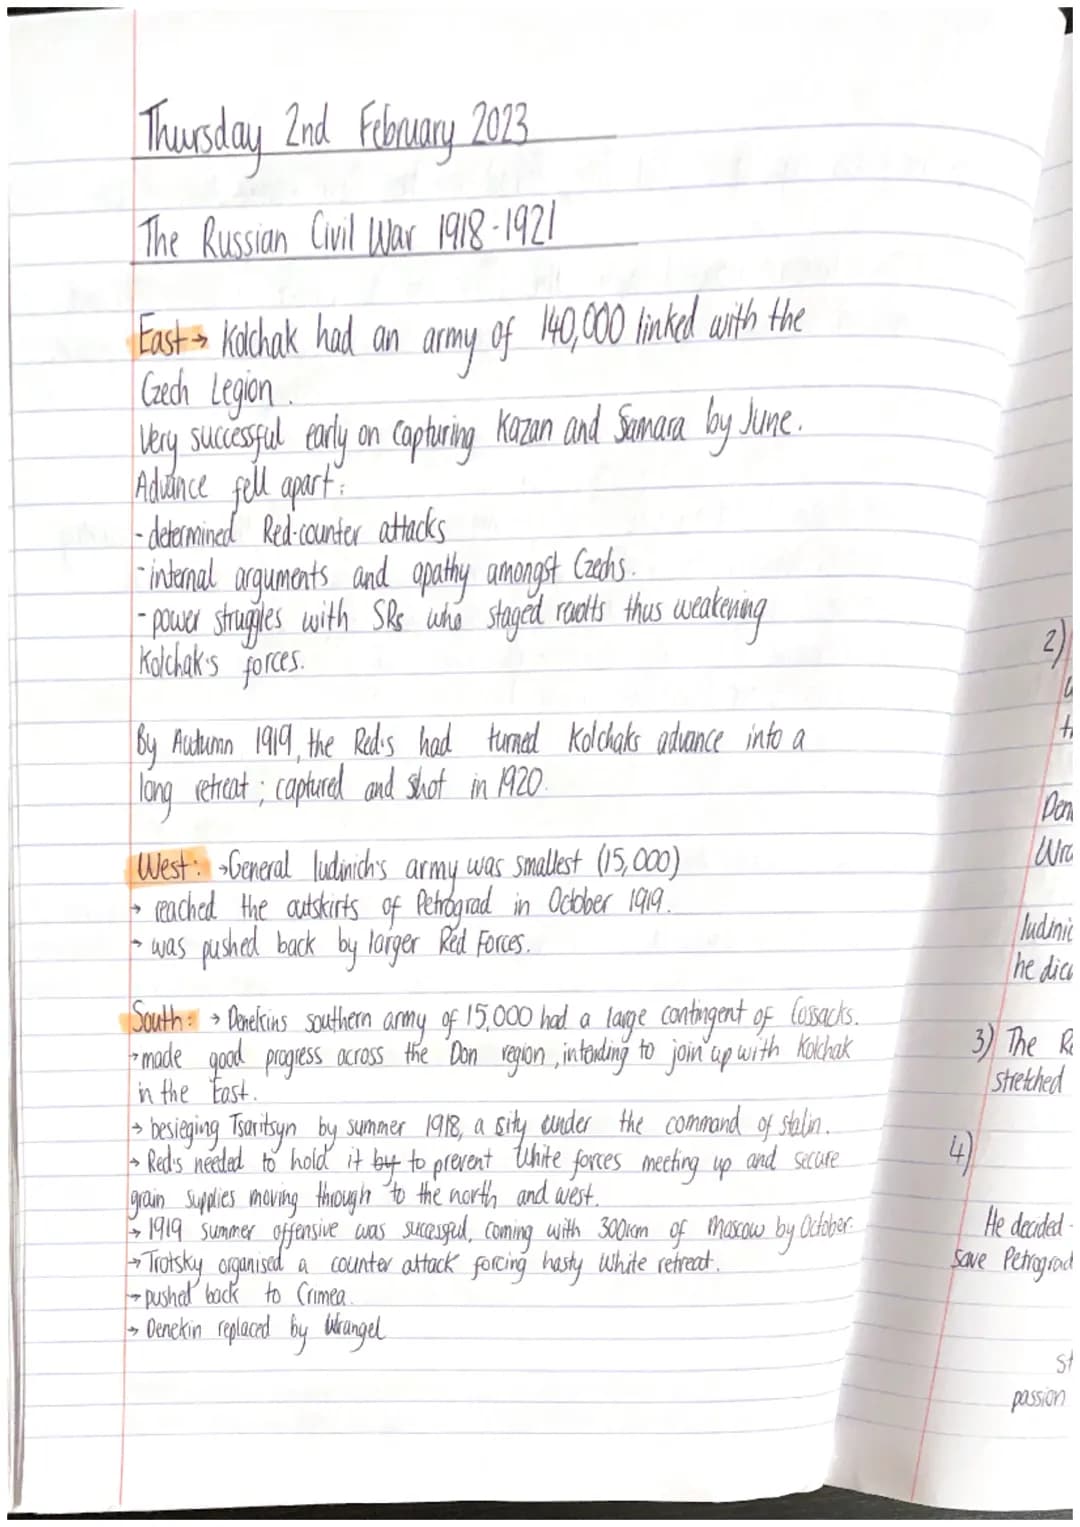 Thursday 2nd February 2023
The Russian Civil War 1918-1921
East → Kolchak had an army of 140,000 linked with the
Czech Legion.
Very successful early on capturing Kazan and Samara by June.
Advance fell apart:
- determined Red-counter attacks
- internal arguments and apathy amongst Czechs.
- power struggles with SRs who staged revolts thus weakening
Kolchak's forces.
By Autumn 1919, the Red's had turned Kolchaks advance into a
long retreat; captured and shot in 1920.
West: → General Iudinich's army was smallest (15,000)
→ reached the outskirts of Petrograd in October 1919.
→ was pushed back by larger Red Forces.
South: → Denekins southern army of 15,000 had a large contingent of Cossacks.
→ made good progress across the Don region, intending to join up with Kolchak
in the East.
→ besieging Tsaritsyn by summer 1918, a sity under the command of stalin.
→ Red's needed to hold it by to prevent White forces meeting up and secure
grain supplies moving through to the north and west.
→ 1919 summer offensive was sucessful, coming with 300km of Moscow by October.
→ Trotsky organised a counter attack forcing hasty White retreat.
→ pushed back to Crimea.
→ Denekin replaced by Wrangel
2)
Den
Wra
Iudinic
he dica
3) The Re
stretched
4)
He decided
save Petrograd
st
passion